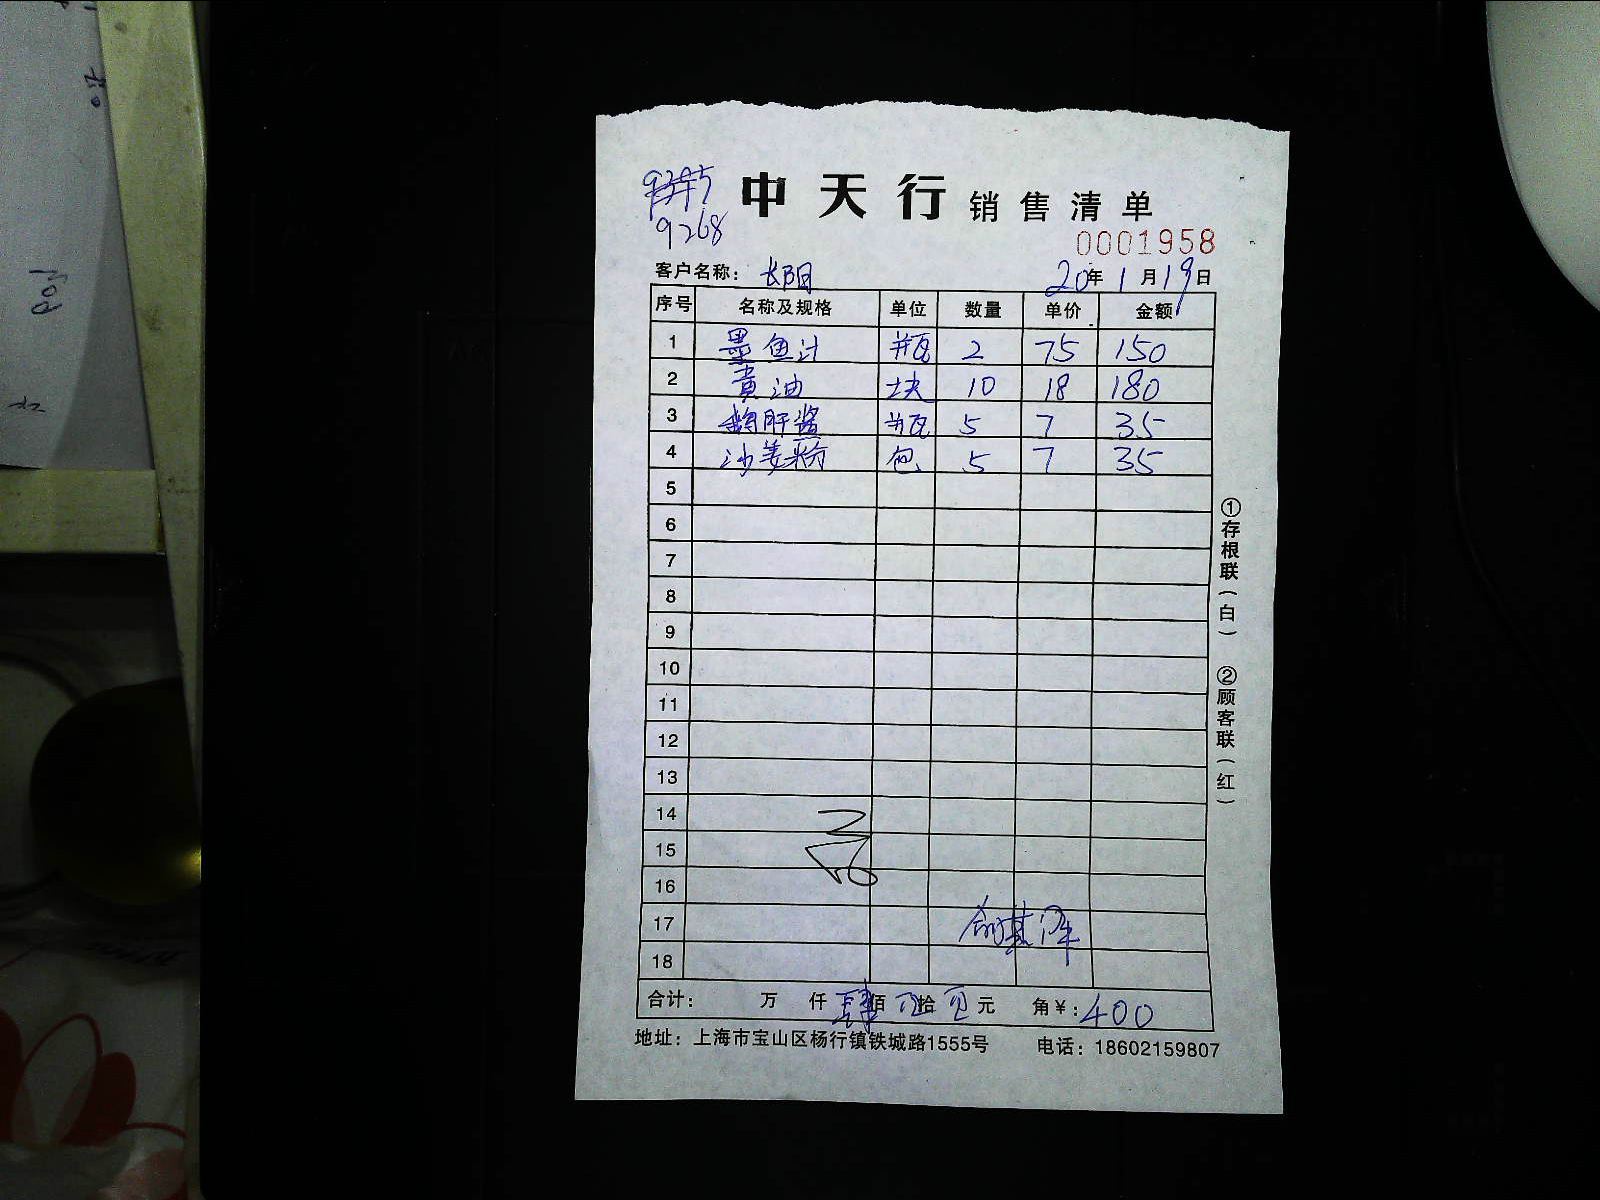 9268
中天行 销售清单
0001958
客户名称: 长阳 20年1月19日
序号 名称及规格 单位 数量 单价 金额
1 墨鱼汁 瓶 2 75 150
2 黄油 块 10 18 180
3 鹅肝酱 瓶 5 7 35
4 沙姜粉 包 5 7 35
5
6
7
8
9
10
11
12
13
14
15
16
17
18
合计: 万 仟 肆佰 拾 元 角¥:400
地址:上海市宝山区杨行镇铁城路1555号 电话:18602159807
①存根联(白) ②顾客联(红)